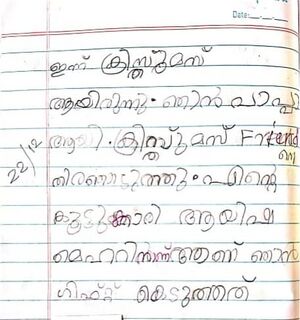 Date:
ഇന്ന് ക്രിസ്തുമസ്
ആയിരുന്നു. ഞാൻ പാപ്പ
22/12
ആയി. ക്രിസ്തുമസ് Friend
നെ
തിരഞ്ഞെടുത്തു. എന്റെ
കൂട്ടുക്കാരി ആയിഷ
മെഹറിന്ന് ആണ് ഞാൻ
ഗിഫ്റ്റ് കെടുത്തത്